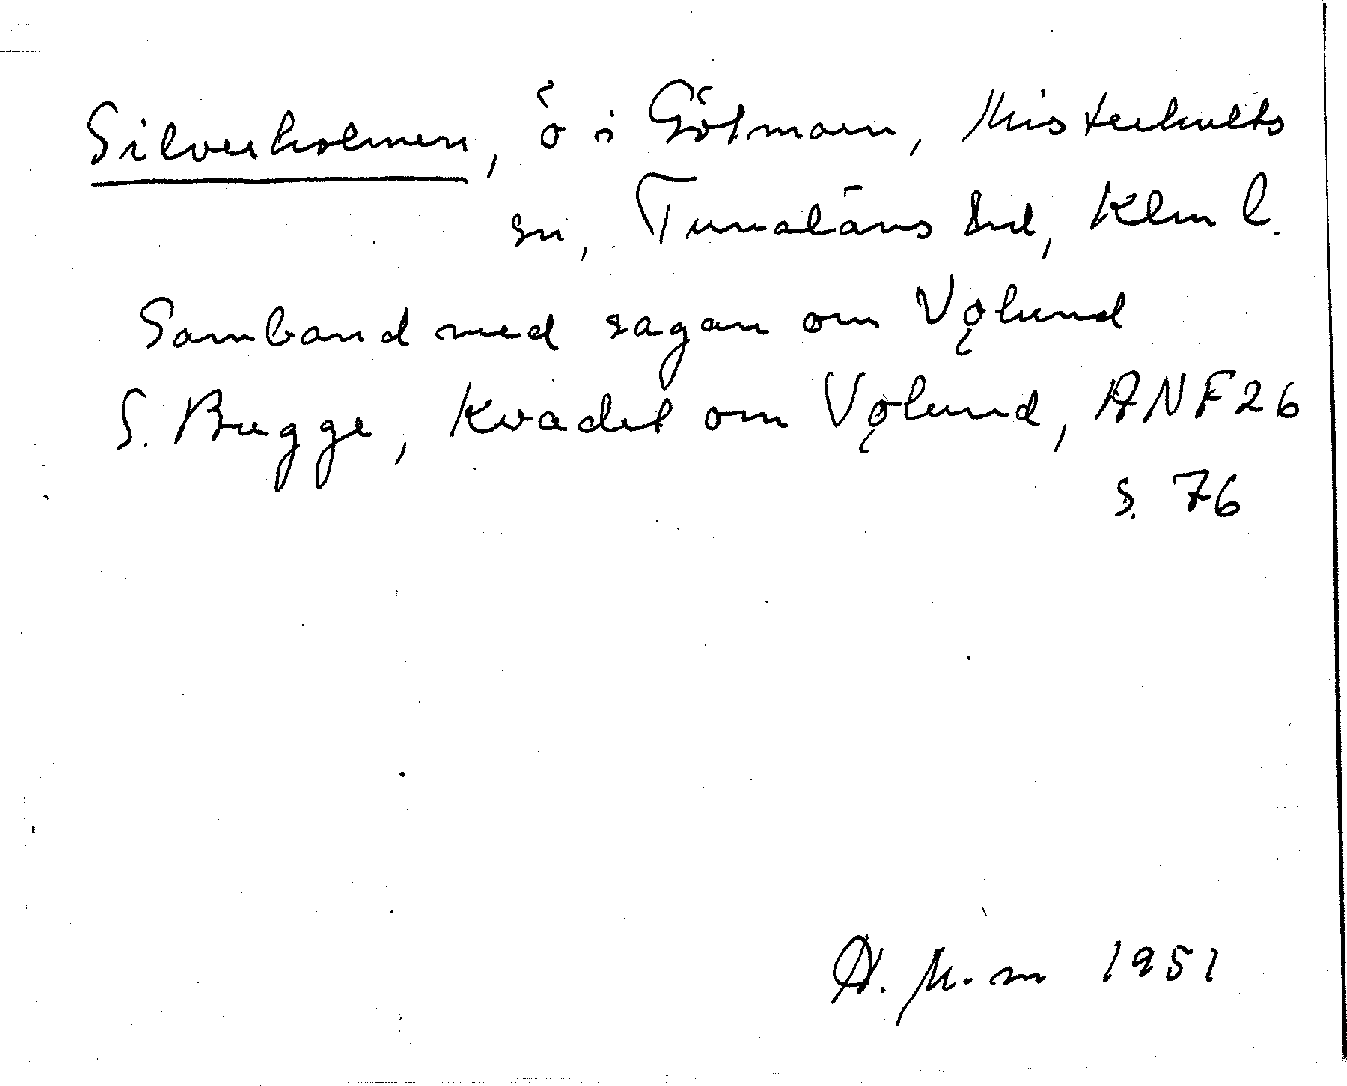 Silverholmen, ö i Götmaren, Misterhults
sn, Tunaläns hd, Klm l.
Samband med sagan om Vǫlund
S. Bugge, Kvadet om Vǫlund, ANF 26
s. 76
1951